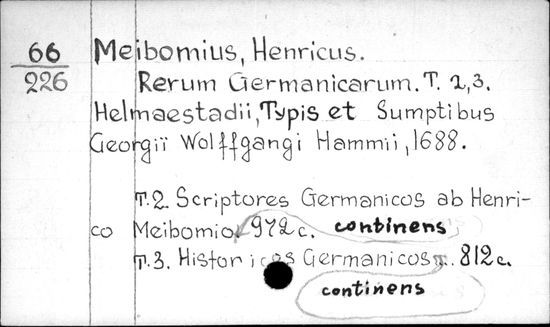 66
226
Meibomius, Henricus.
Rerum Germanicarum. T. 2,3.
Helmaestadii, Typis et Sumptibus
Georgii Wolffgangi Hammii, 1688.
T.2. Scriptores Germanicos ab Henri-
co Meibomio 972 c. continens
T.3. Historicos Germanicos 812 c.
continens